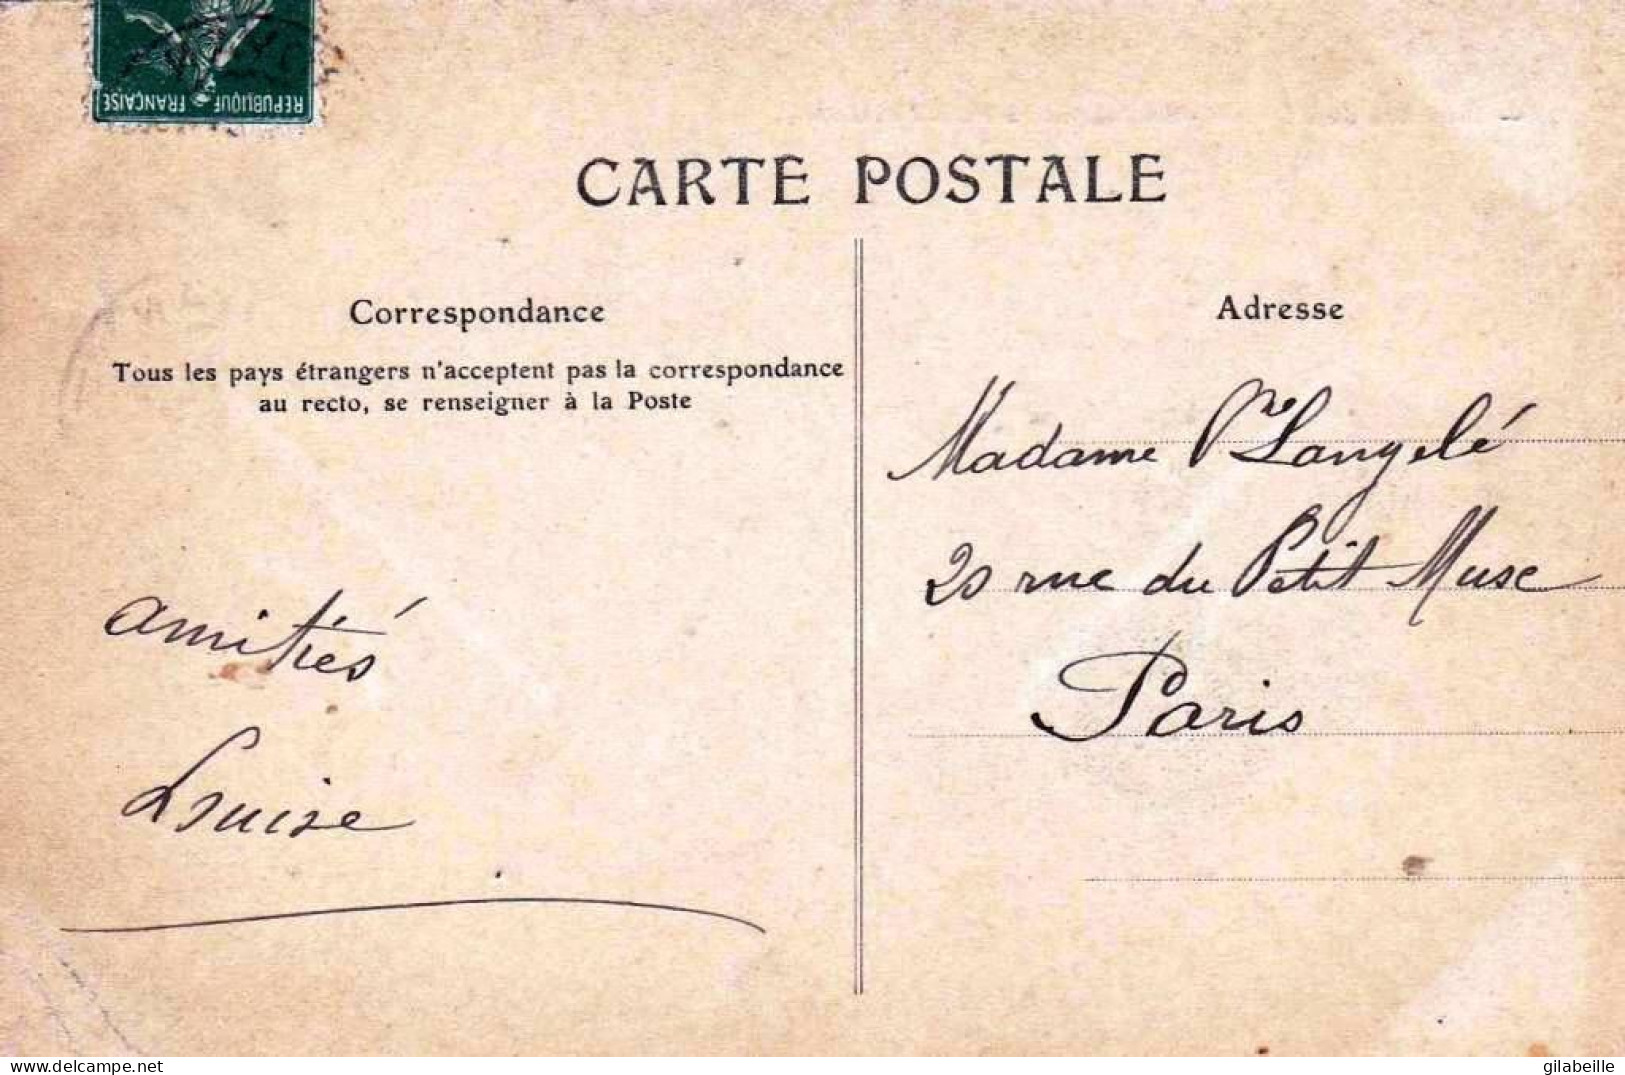 REPUBLIQUE FRANÇAISE
CARTE POSTALE
Correspondance
Tous les pays étrangers n'acceptent pas la correspondance
au recto, se renseigner à la Poste
amitiés
Louise
Adresse
Madame Langelé
20 rue du Petit Musc
Paris
www.delcampe.net
gilabeille